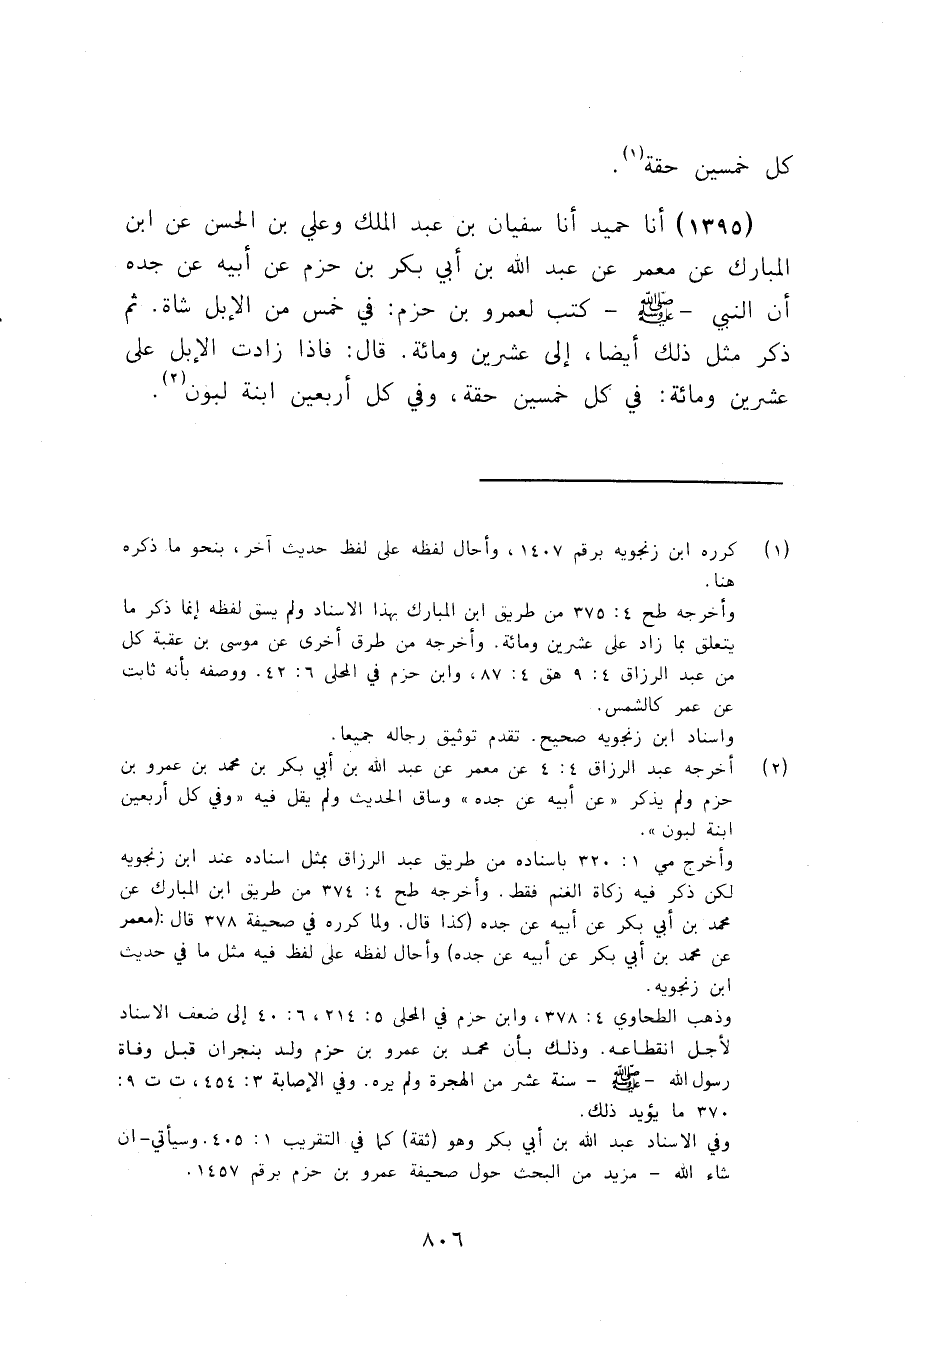 كل خمسين حقة(١).
(١٣٩٥) أنا حميد أنا سفيان بن عبد الملك وعلي بن الحسن عن ابن
المبارك عن معمر عن عبد الله بن أبي بكر بن حزم عن أبيه عن جده
أن النبي - ﷺ - كتب لعمرو بن حزم: في خمس من الإبل شاة. ثم
ذكر مثل ذلك أيضا، إلى عشرين ومائة. قال: فاذا زادت الإبل على
عشرين ومائة: في كل خمسين حقة، وفي كل أربعين ابنة لبون(٢).
(١) كرره ابن زنجويه برقم ١٤٠٧، وأحال لفظه على لفظ حديث آخر، بنحو ما ذكره
هنا.
وأخرجه طح ٤: ٣٧٥ من طريق ابن المبارك بهذا الاسناد ولم يسق لفظه إنما ذكر ما
يتعلق بما زاد على عشرين ومائة. وأخرجه من طرق أخرى عن موسى بن عقبة كل
من عبد الرزاق ٤: ٩ هق ٤: ٨٧، وابن حزم في المحلى ٦: ٤٢. ووصفه بأنه ثابت
عن عمر كالشمس.
واسناد ابن زنجويه صحيح. تقدم توثيق رجاله جميعا.
(٢) أخرجه عبد الرزاق ٤: ٤ عن معمر عن عبد الله بن أبي بكر بن محمد بن عمرو بن
حزم ولم يذكر «عن أبيه عن جده» وساق الحديث ولم يقل فيه «وفي كل أربعين
ابنة لبون».
وأخرج مي ١: ٣٢٠ باسناده من طريق عبد الرزاق بمثل اسناده عند ابن زنجويه
لكن ذكر فيه زكاة الغنم فقط. وأخرجه طح ٤: ٣٧٤ من طريق ابن المبارك عن
محمد بن أبي بكر عن أبيه عن جده (كذا قال. ولما كرره في صحيفة ٣٧٨ قال:(معمر
عن محمد بن أبي بكر عن أبيه عن جده) وأحال لفظه على لفظ فيه مثل ما في حديث
ابن زنجويه.
وذهب الطحاوي ٤: ٣٧٨، وابن حزم في المحلى ٥: ٢١٤، ٦: ٤٠ إلى ضعف الاسناد
لأجل انقطاعه. وذلك بأن محمد بن عمرو بن حزم ولد بنجران قبل وفاة
رسول الله - ﷺ - سنة عشر من الهجرة ولم يره. وفي الإصابة ٣: ٤٥٤، ت ت ٩:
٣٧٠ ما يؤيد ذلك.
وفي الاسناد عبد الله بن أبي بكر وهو (ثقة) كما في التقريب ١: ٤٠٥. وسيأتي- ان
شاء الله - مزيد من البحث حول صحيفة عمرو بن حزم برقم ١٤٥٧.
٨٠٦